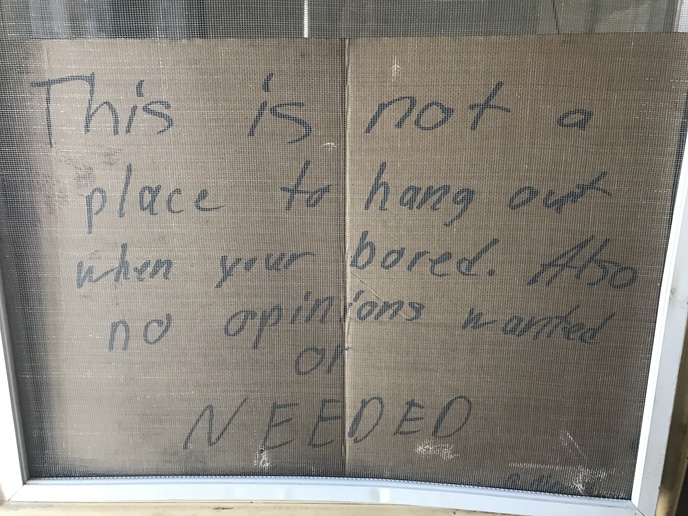 This is not a
place to hang out
when your bored. Also
no opinions wanted
or
NEEDED